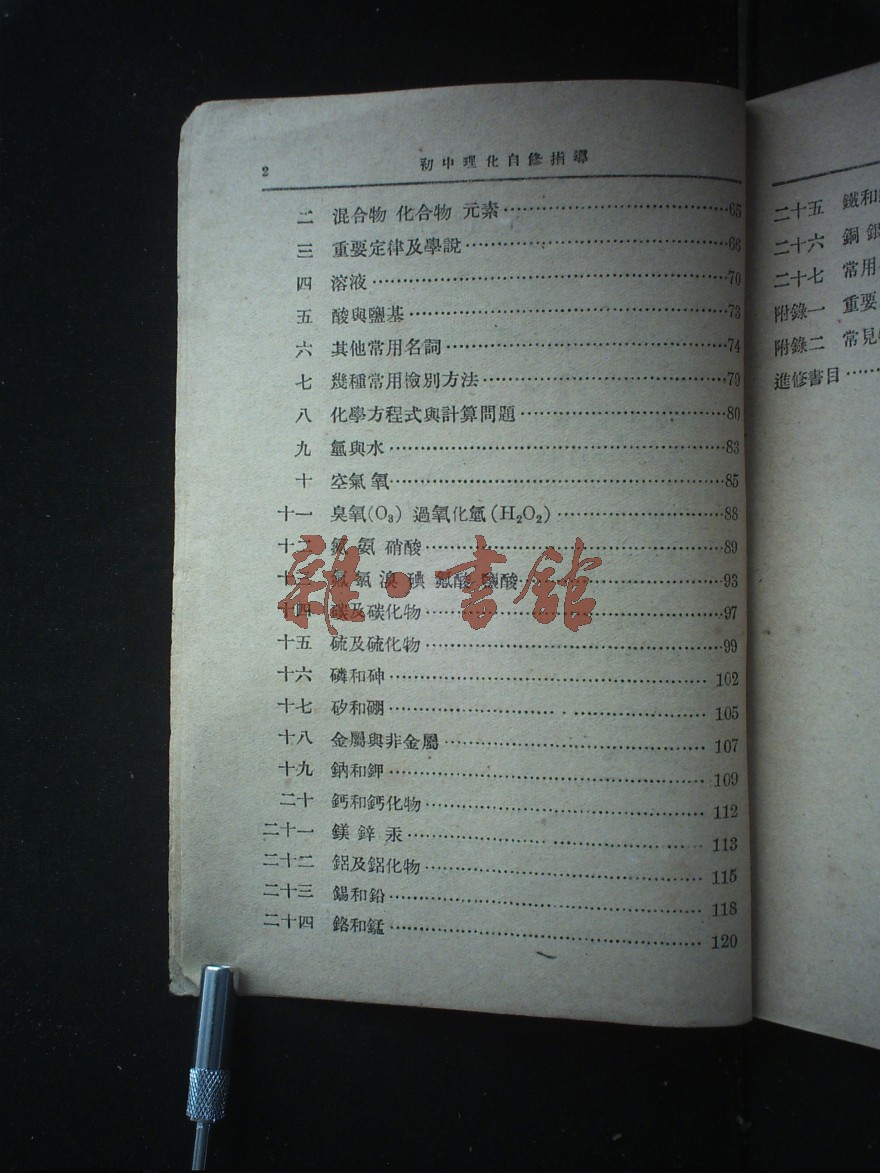 2
初中理化自修指導
二 混合物 化合物 元素 65
三 重要定律及學說 66
四 溶液 70
五 酸與鹽基 73
六 其他常用名詞 74
七 幾種常用檢別方法 79
八 化學方程式與計算問題 80
九 氫與水 83
十 空氣 氧 85
十一 臭氧(O₃) 過氧化氫(H₂O₂) 88
十二 氮 氨 硝酸 89
十三 氟 氯 溴 碘 氟酸 鹽酸 93
十四 碳及碳化物 97
十五 硫及硫化物 99
十六 磷和砷 102
十七 矽和硼 105
十八 金屬與非金屬 107
十九 鈉和鉀 109
二十 鈣和鈣化物 112
二十一 鎂 鋅 汞 113
二十二 鋁及鋁化物 115
二十三 錫和鉛 118
二十四 鉻和錳 120
雜·書館
二十五 鐵和
二十六 銅 銀
二十七 常用
附錄一 重要
附錄二 常見
進修書目